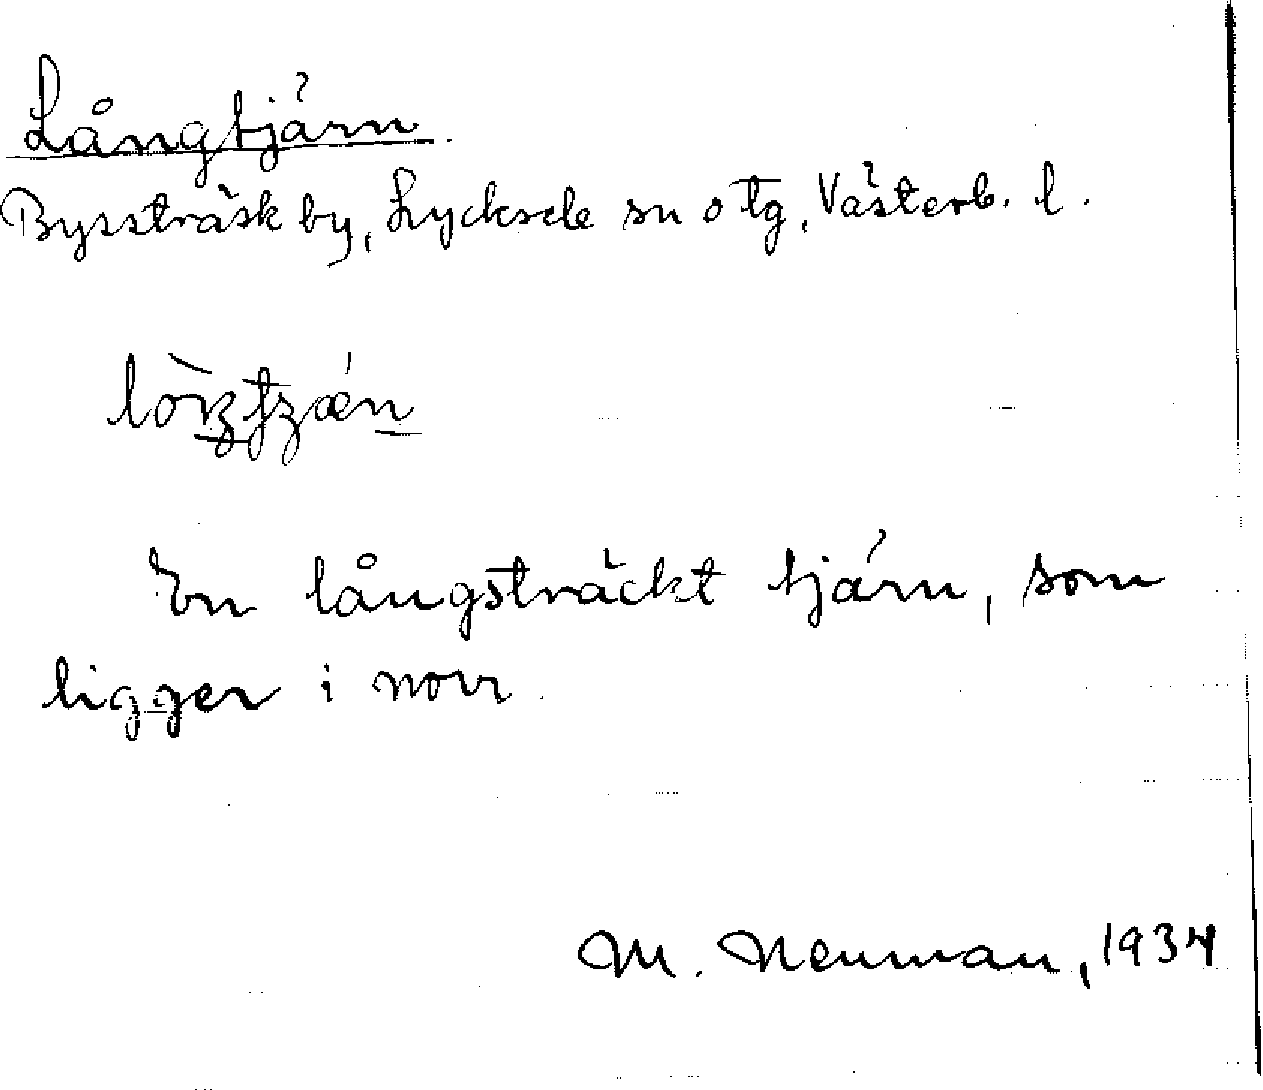 Långtjärn.
Byssträsk by, Lycksele sn o tg, Västerb. l.
En långsträckt tjärn, som
ligger i norr.
M. Neuman, 1934